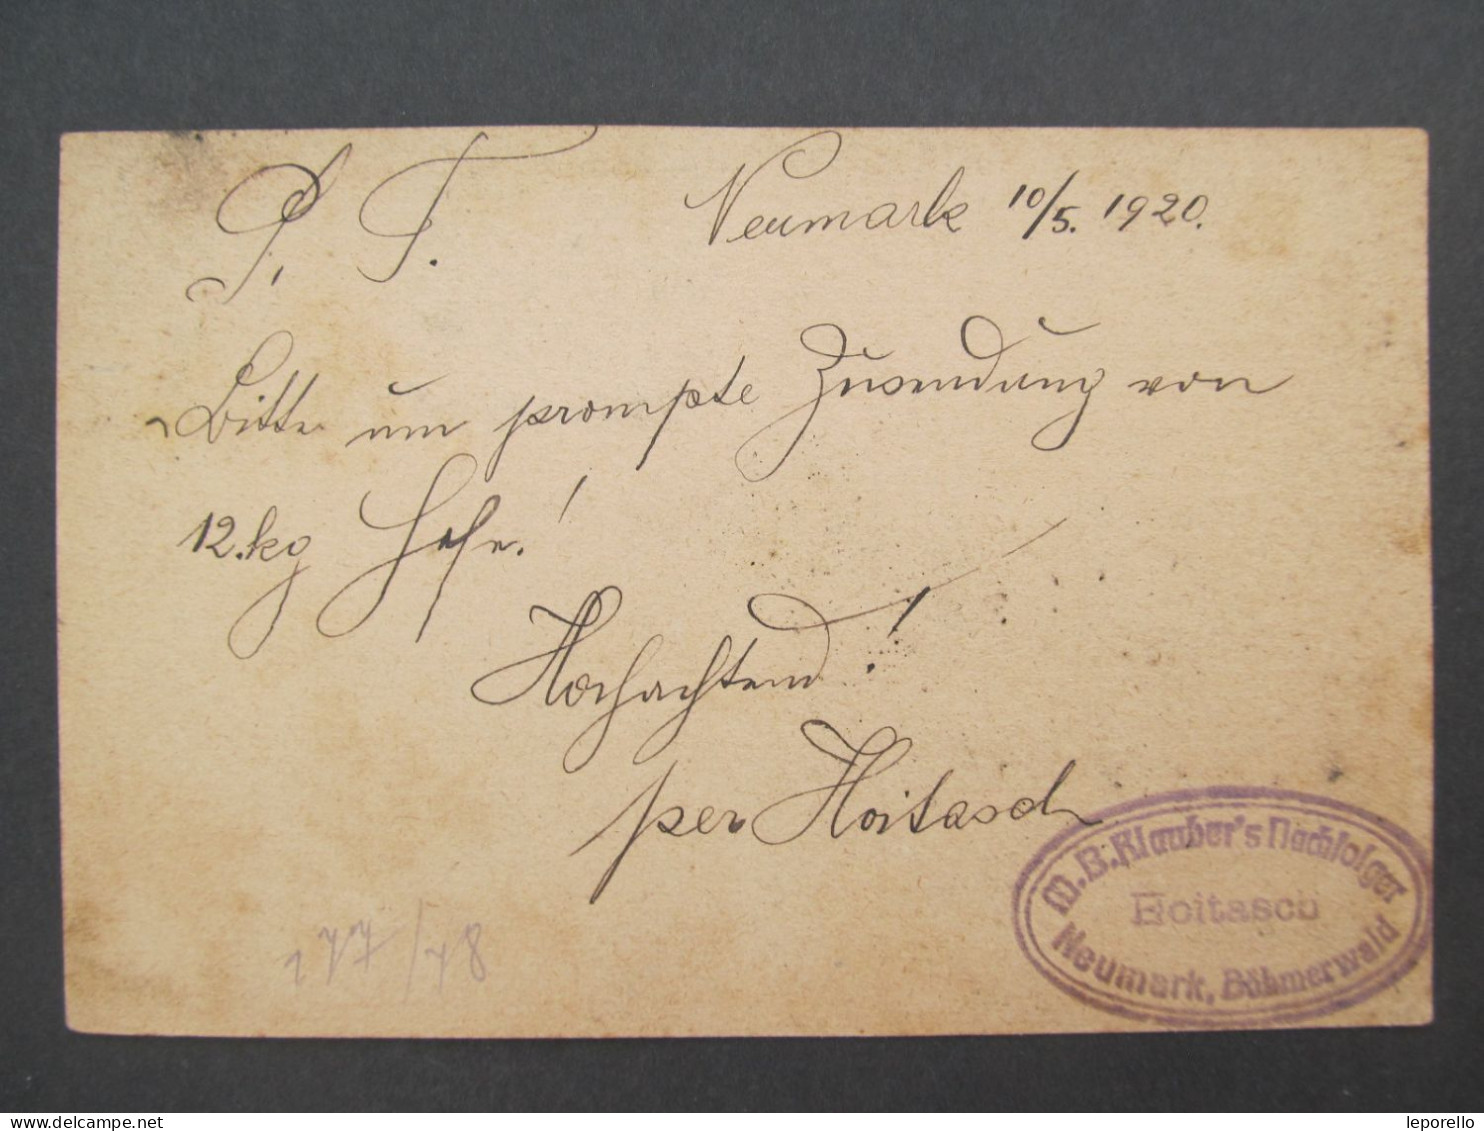 P. T.
Neumark 10/5. 1920.
Bitte um prompte Zusendung von
12.kg Hefe!
Hochachtend!
per Hoitasch
M.B.Klauber's Nachfolger
Hoitasch
Neumark, Böhmerwald
www.delcampe.net
leporello